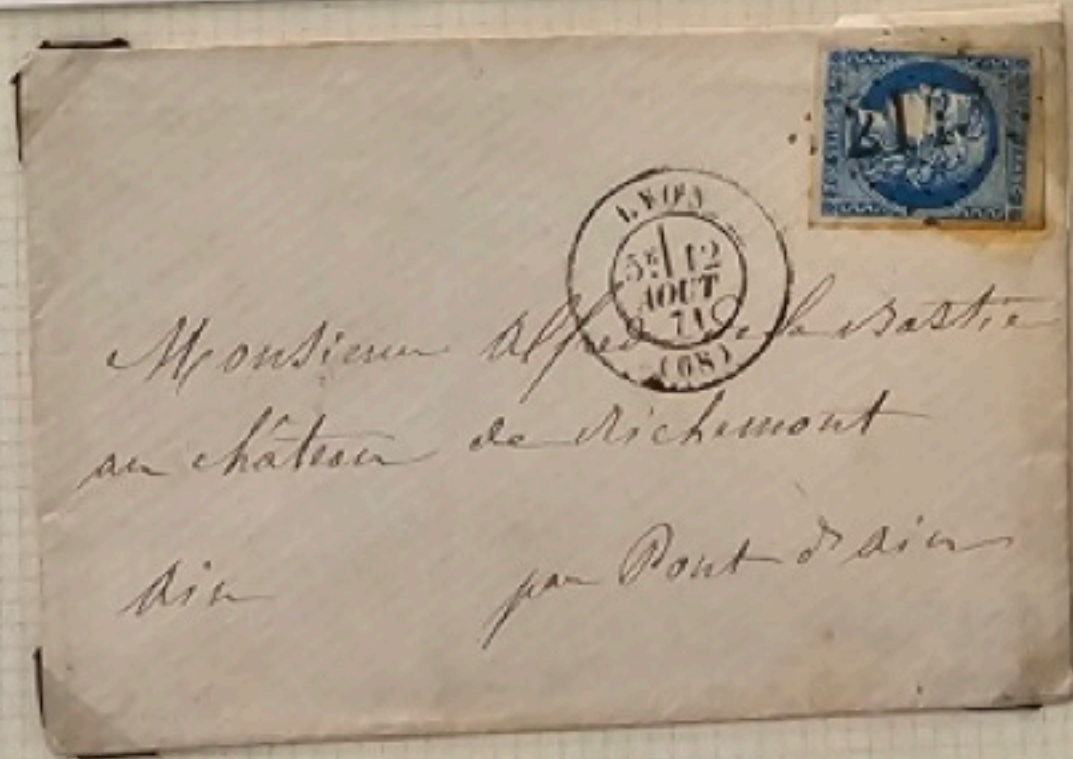 LYON
5E 12
AOUT
71
(68)
Monsieur Alfred de la Bastie
au château de Richemont
Ain par Pont d'Ain